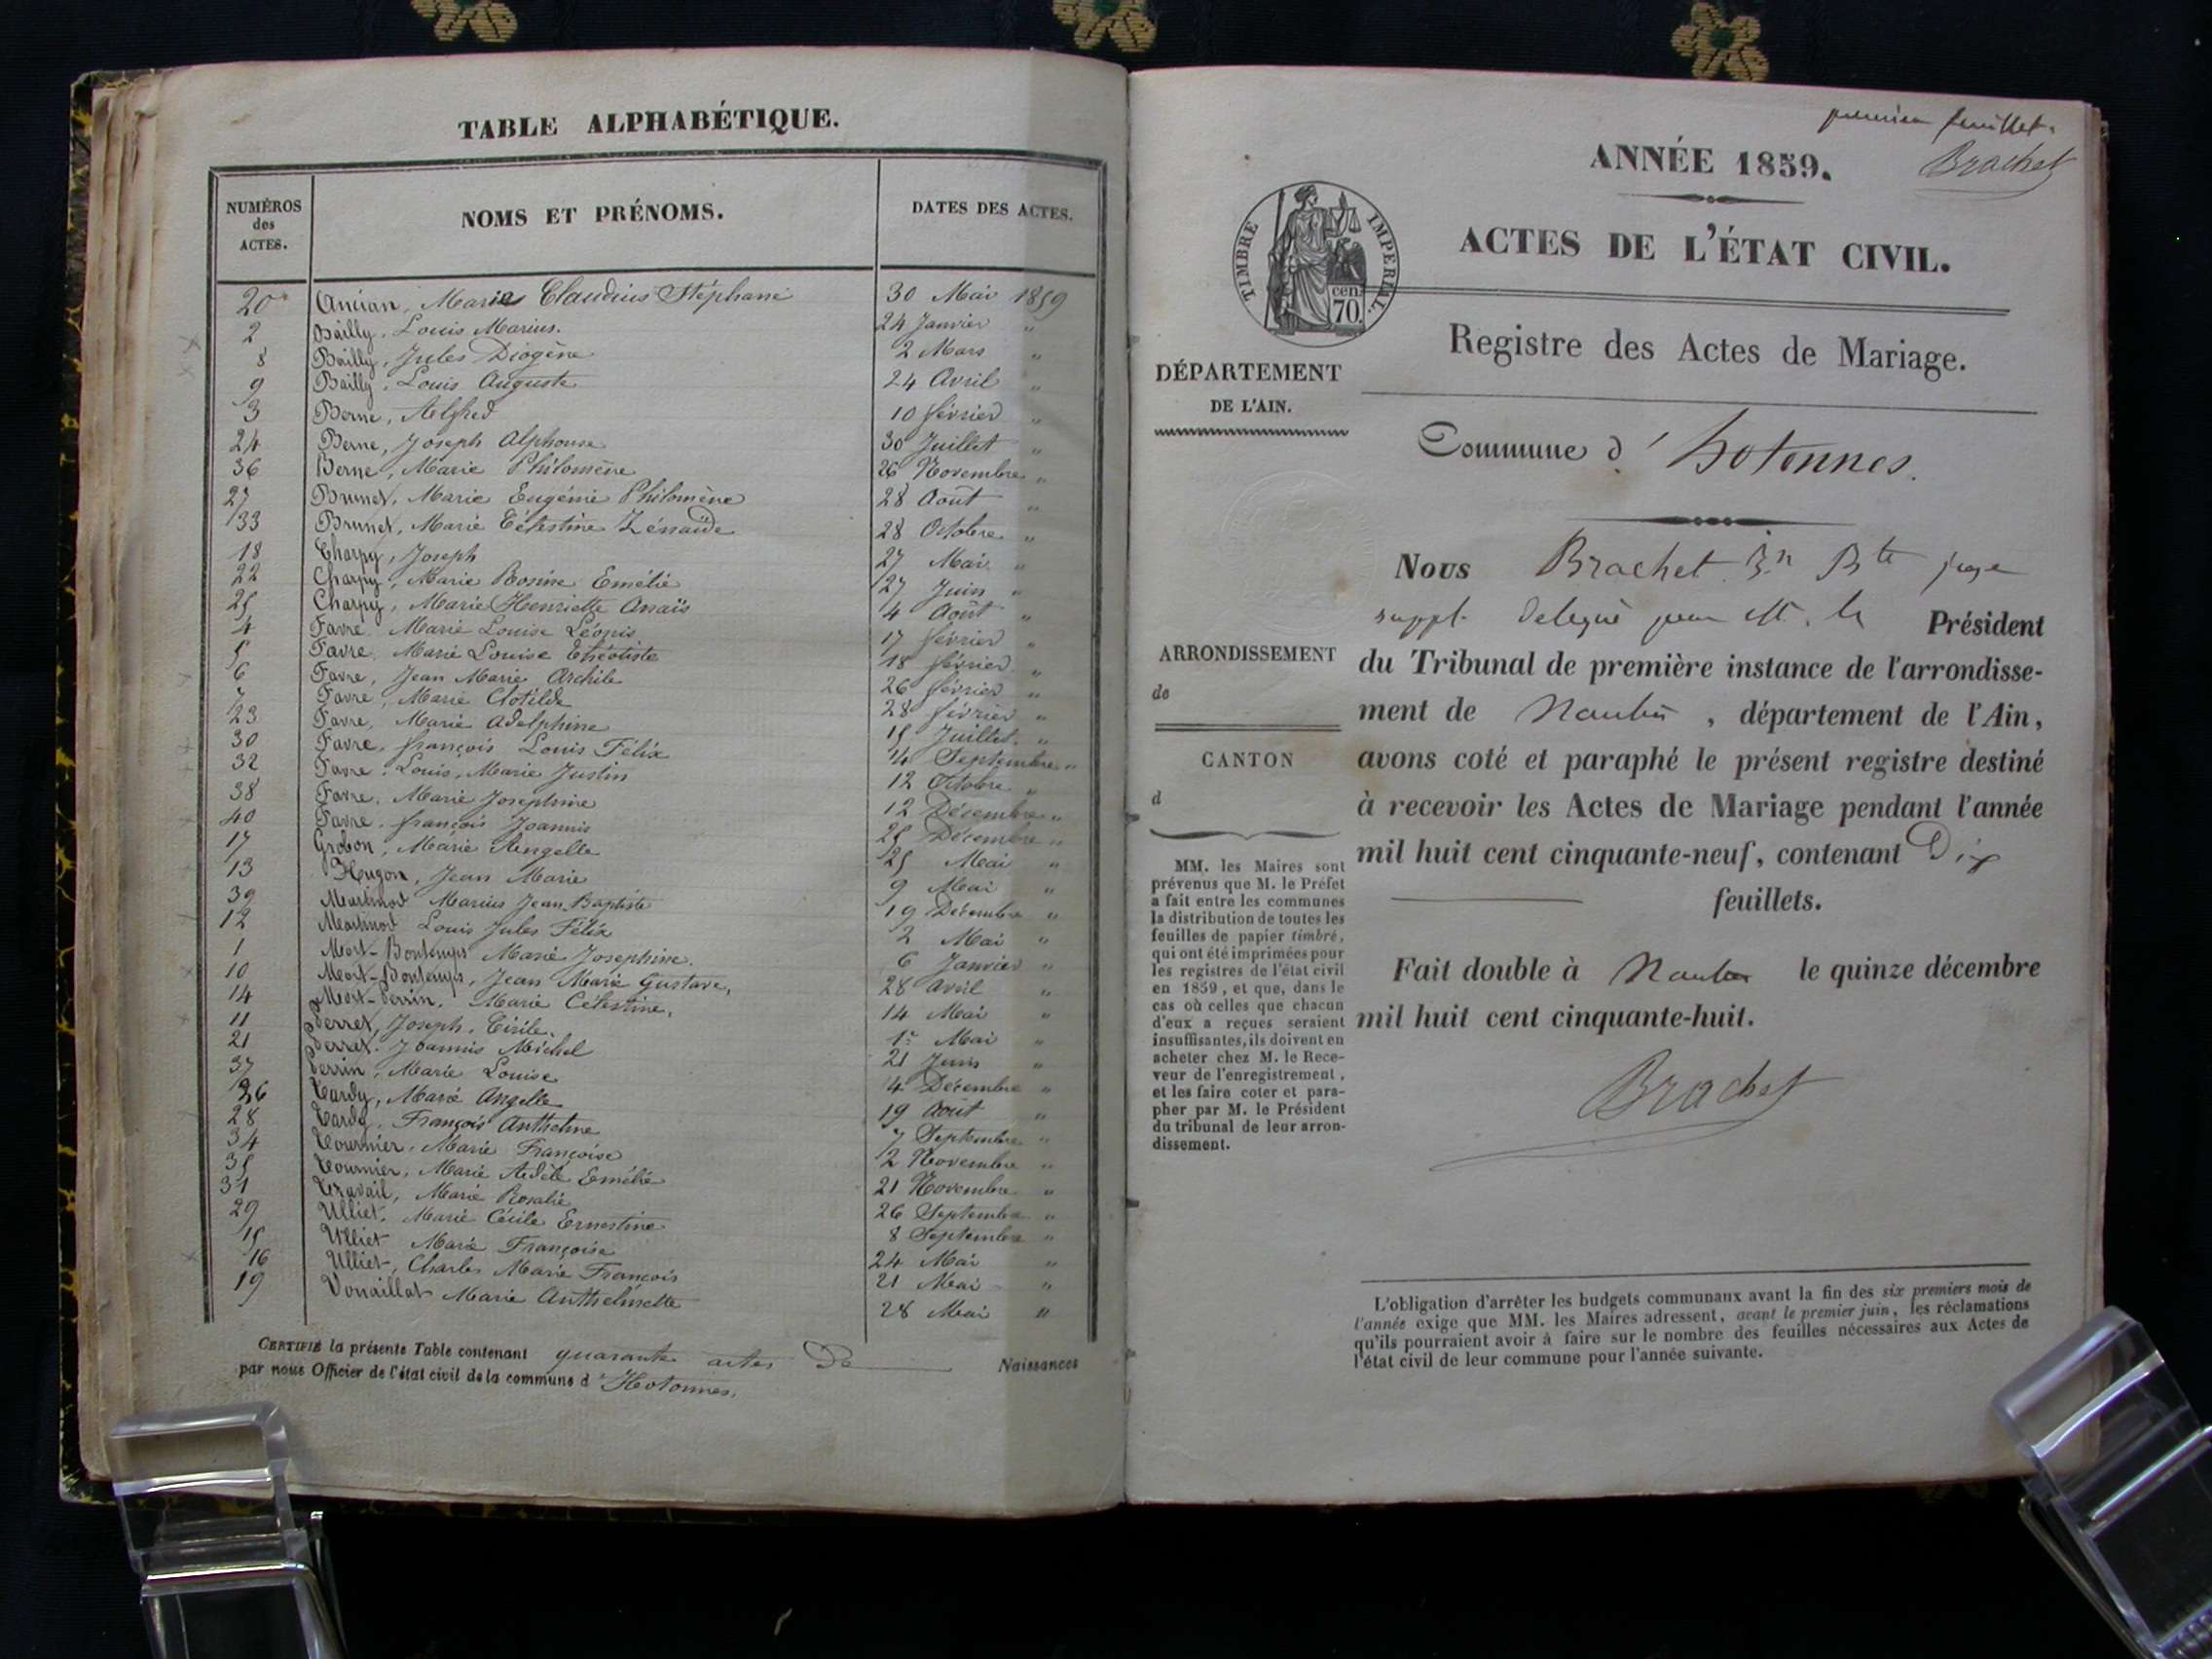 TABLE ALPHABÉTIQUE.
NUMÉROS des ACTES.
NOMS ET PRÉNOMS.
DATES DES ACTES.
20 Ancian, Marie Claudius Stéphanie 30 Mai 1859
2 Bailly, Louis Marius. 24 Janvier "
8 Bailly, Jules Diogène 2 Mars "
9 Bailly, Louis Auguste 24 Avril "
3 Berne, Alfred 10 février "
24 Berne, Joseph Alphonse 30 Juillet "
36 Berne, Marie Philomène 26 Novembre "
27 Brunet, Marie Eugénie Philomène 28 Août "
33 Brunet, Marie Célestine Zénaïde 28 Octobre "
18 Charpy, Joseph 27 Mai "
22 Charpy, Marie Rosine Emélie 27 Juin "
25 Charpy, Marie Henriette Anaïs 4 Août "
4 Favre, Marie Louise Léonis 17 février "
5 Favre, Marie Louise Théotiste 18 février "
6 Favre, Jean Marie Archile 26 février "
7 Favre, Marie Clotilde 28 février "
23 Favre, Marie Adelphine 15 Juillet "
30 Favre, françois Louis Félix 14 Septembre "
32 Favre, Louis, Marie Justin 12 Octobre "
38 Favre, Marie Josephine 12 Décembre "
40 Favre, françois Joannis 25 Décembre "
17 Grobon, Marie Angelle 25 Mai "
13 Hugon, Jean Marie 9 Mai "
39 Martinod Marius Jean Baptiste 19 Décembre "
12 Martinod Louis Jules Félix 2 Mai "
1 Mort-Bontemps Marie Josephine. 6 Janvier "
10 Mort-Bontemps, Jean Marie Gustave, 28 Avril "
14 Mort-Perrin, Marie Célestine, 14 Mai "
11 Perret, Joseph, Cirile. 1er Mai "
21 Perret, Joannis Michel 21 Juin "
37 Perrin, Marie Louise 4 Décembre "
26 Tardy, Marie Angelle 19 Août "
28 Tardy, François Anthelme 7 Septembre "
34 Tournier, Marie Françoise 2 Novembre "
35 Tournier, Marie Adèle Emélie 21 Novembre "
31 Travail, Marie Rosalie 26 Septembre "
29 Ulliet, Marie Cécile Ernestine 8 Septembre "
15 Ulliet Marie Françoise 24 Mai "
16 Ulliet, Charles Marie François 21 Mai "
19 Vonaillat Marie Anthelmette 28 Mai "
CERTIFIÉ la présente Table contenant quarante actes De Naissances
par nous Officier de l'état civil de la commune d'Hotonnes.
premier feuillet.
Brachet
ANNÉE 1859.
ACTES DE L'ÉTAT CIVIL.
TIMBRE IMPERIAL.
cen. 70.
Registre des Actes de Mariage.
DÉPARTEMENT
DE L'AIN.
Commune d'hotonnes.
Nous Brachet Jn Bte juge
suppl. délégué par M. le Président
du Tribunal de première instance de l'arrondisse-
ment de Nantua, département de l'Ain,
avons coté et paraphé le présent registre destiné
à recevoir les Actes de Mariage pendant l'année
mil huit cent cinquante-neuf, contenant Dix
feuillets.
Fait double à Nantua le quinze décembre
mil huit cent cinquante-huit.
Brachet
ARRONDISSEMENT
de
CANTON
d
MM. les Maires sont
prévenus que M. le Préfet
a fait entre les communes
la distribution de toutes les
feuilles de papier timbré,
qui ont été imprimées pour
les registres de l'état civil
en 1859, et que, dans le
cas où celles que chacun
d'eux a reçues seraient
insuffisantes, ils doivent en
acheter chez M. le Rece-
veur de l'enregistrement,
et les faire coter et para-
pher par M. le Président
du tribunal de leur arron-
dissement.
L'obligation d'arrêter les budgets communaux avant la fin des six premiers mois de
l'année exige que MM. les Maires adressent, avant le premier juin, les réclamations
qu'ils pourraient avoir à faire sur le nombre des feuilles nécessaires aux Actes de
l'état civil de leur commune pour l'année suivante.